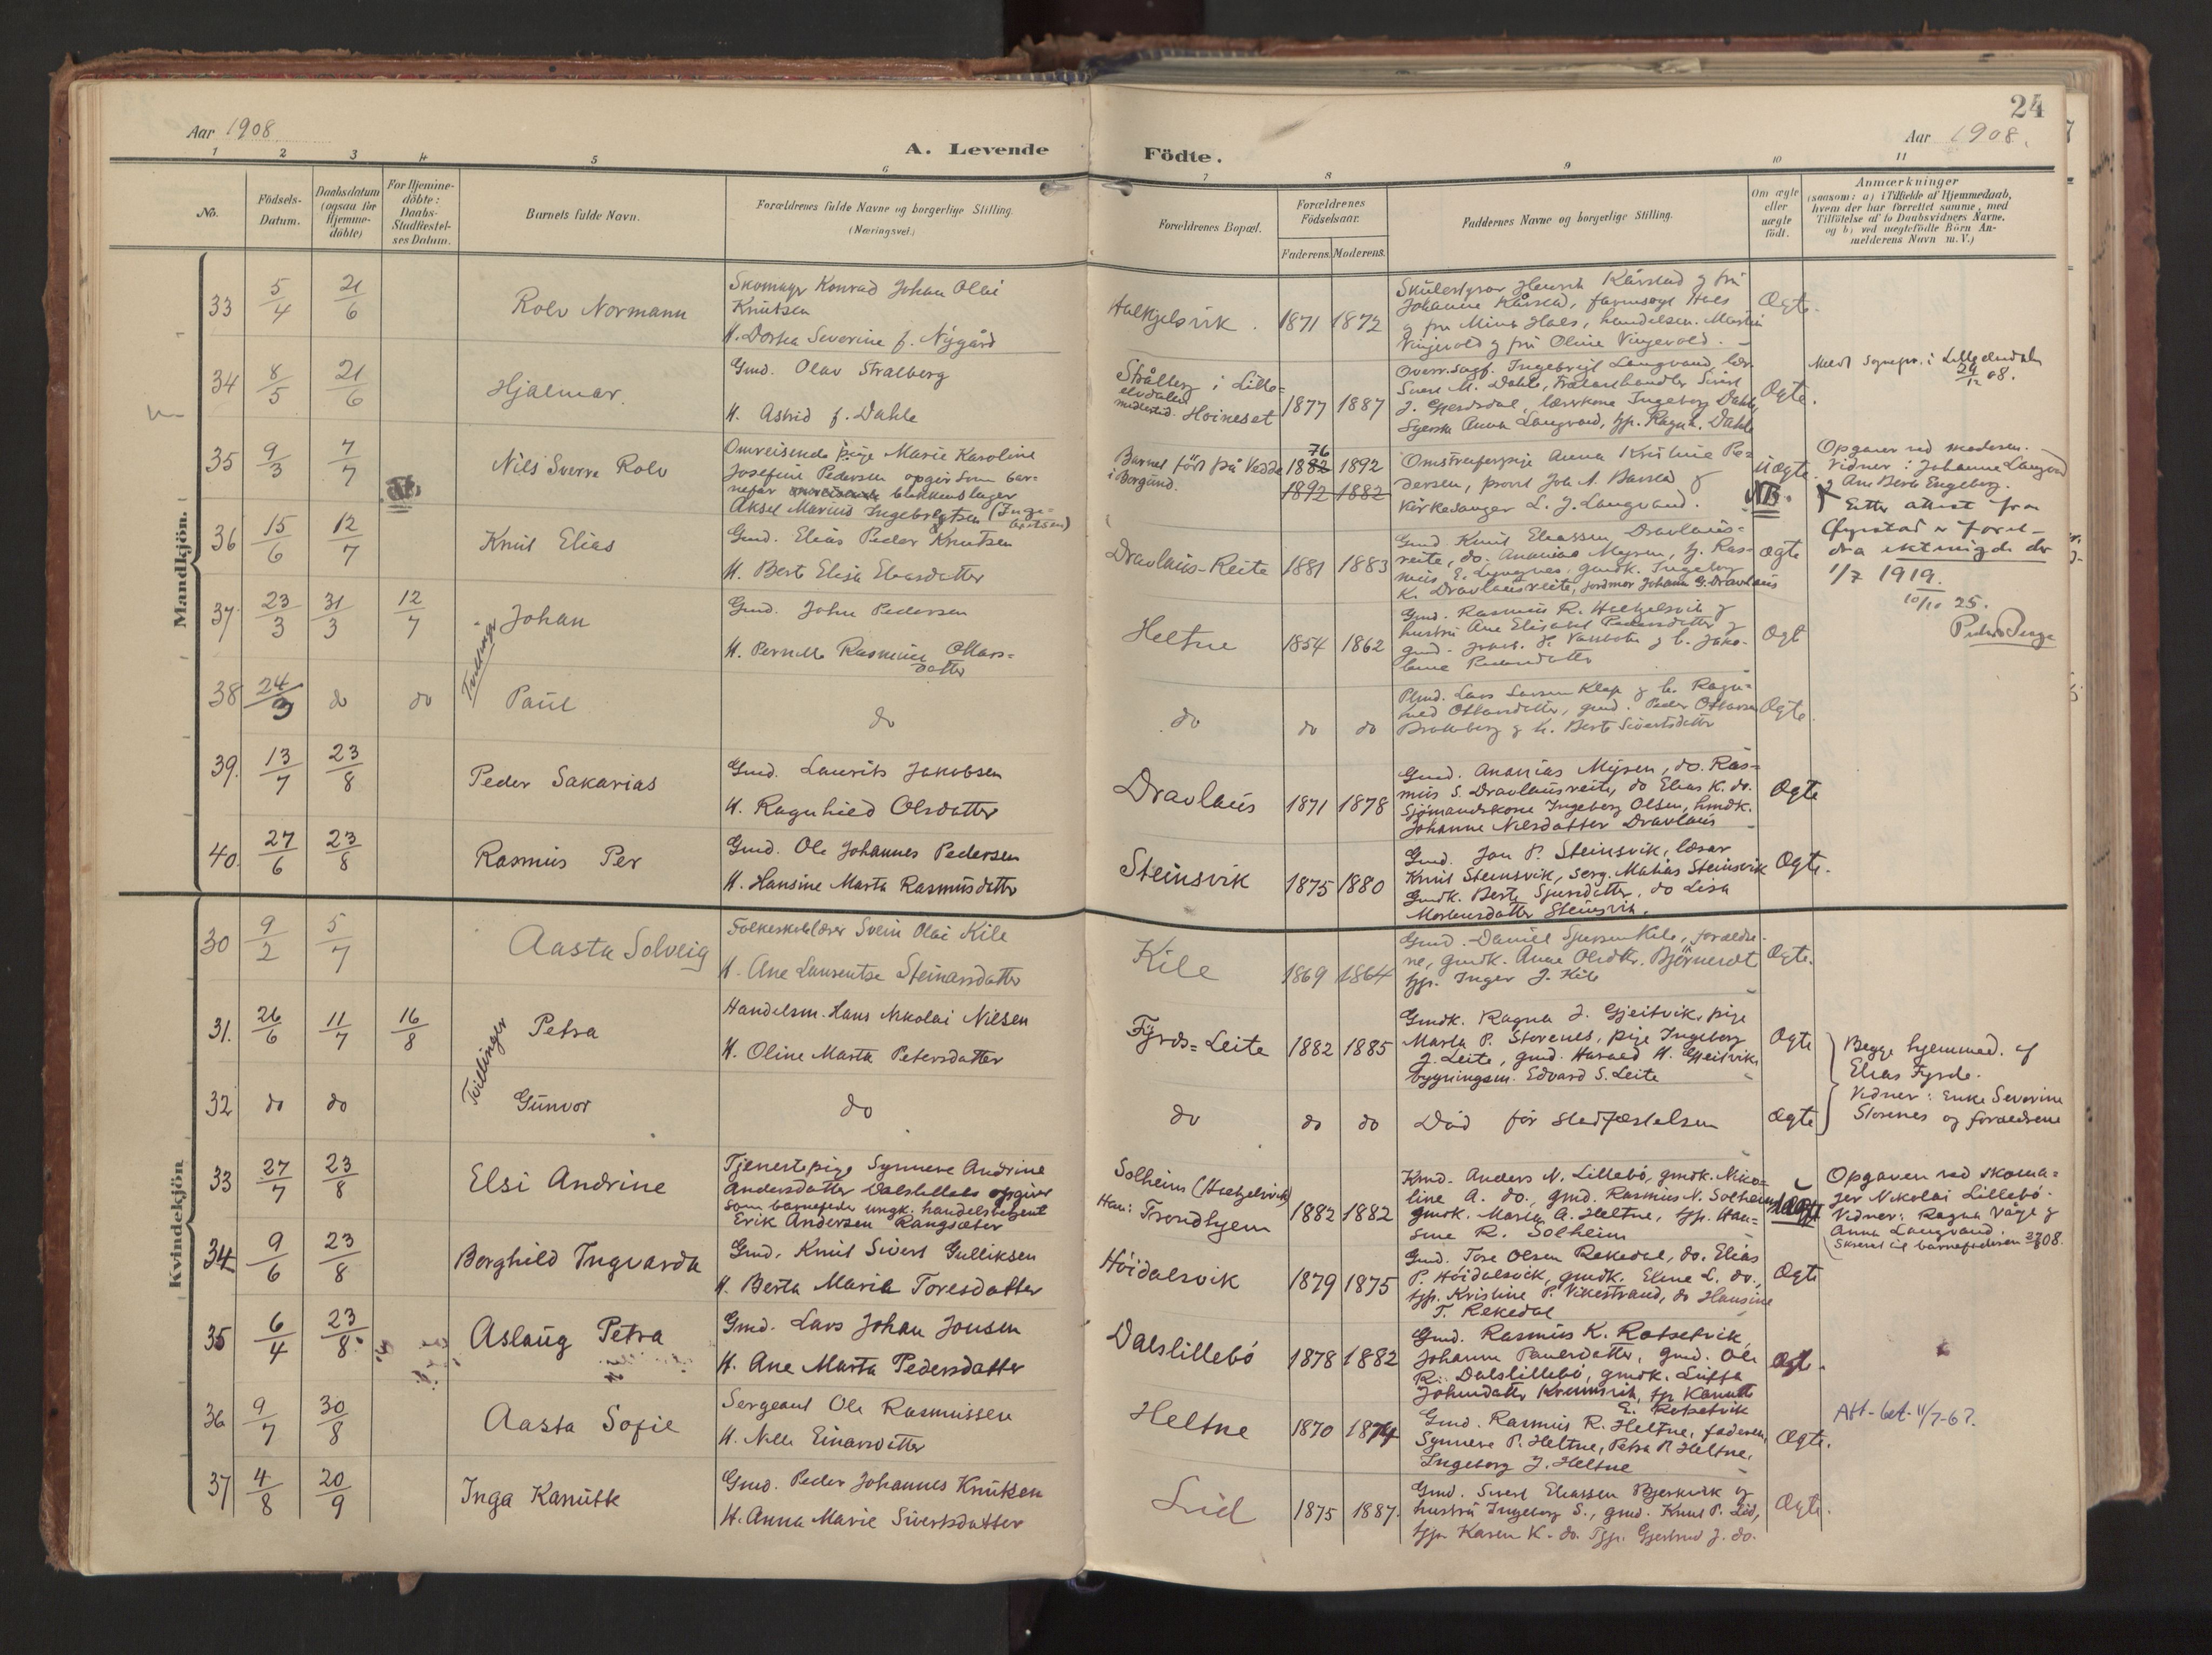 24
Aar 1908
Aar 1908.
A. Levende
Födte.
1 2 3 4 5 6 7 8 9 10 11
No.
Födsels-
Datum.
Daabsdatum
(ogsaa for
Hjemme-
döbte)
For Hjemme-
döbte:
Daabs-
Stadfæstel-
ses Datum.
Barnets fulde Navn.
Forældrenes fulde Navne og borgerlige Stilling.
(Næringsvei.)
Forældrenes Bopæl.
Forældrenes
Födselsaar.
Faderens. Moderens.
Faddernes Navne og borgerlige Stilling.
Om ægte
eller
uægte
födt.
Anmærkninger
(saasom: a) i Tilfælde af Hjemmedaab,
hvem der har forrettet samme, med
Tilföielse af to Daabsvidners Navne,
og b) ved uægtefödte Börn An-
melderens Navn m. V.)
Mandkjön.
33 5/4 21/6
Rolv Normann
Skomager Konrad Johan Olai
Knutsen
H. Dortea Severine f. Nygård
Aalkjelsvik. 1871 1872
Johanne Kårstad,
Vingevold g fru Oline Vingevold.
Ogte.
34 8/5 21/6
Hjalmar.
Gmd. Olav Stralberg
H. Astrid f. Dahle
Strålberg i Lille-
elvdalen
midlertid. Hoineset
1877 1887
Overr.sagf. Ingebrigt Langvand, lær.
Syerske Anna Langvand, tjp. Ragnh. Dahle
Ogte.
Medt sognepr. i Lilleelvdalen
29/12 08.
35 9/3 7/7
Nils Sverre Rolv
Omreisende pige Marie Karoline
Josefine Pedersen opgir som bar-
nefar blikkenslager
Aksel Marius Ingebrigtsen (Inge-
britsen)
Barnet föd på Vedde
i Borgund.
76
1882 1892
1892 1882
Omstreiferpige Anna Kristine Pe-
dersen, provst Joh. A. Barstad g
kirkesanger L. J. Langvand.
Uægte.
NB.
Opgaver ved moderen.
Vidner: Johanne Langvand
g Ane Berte Engeberg.
Etter attest fra
Öyrstad er forel-
dra ektevigde der
1/7 1919.
10/10 25.
36 15/6 12/7
Knut Elias
Gmd. Elias Peder Knutsen
H. Berte Elisa Eliasdatter
Dravlaus-Reite 1881 1883
Gmd. Knut Eliassen Dravlaus-
reite, do. Ananias Myren, tj. Ras-
mus E. Lyngnes, gmdk. Ingeborg
K. Dravlausreite, jordmor Johanne G. Dravlaus
Ogte
37 23/3 31/3 12/7
Tvillinger
Johan
Gmd. John Pedersen
H. Pernille Rasmine Ottars-
datter
Heltne 1854 1862
Gmd. Rasmus R. Aalkjelsvik g
hustru Ane Elisabet Pedersdatter g
Ogt
38 24/3 do do
Paul
do
do do do
Plmd. Lars Larsen Klep g h. Ragn-
hild Ottarsdatter, gmd. Peder Ottarsen
Bratteberg g h. Berte Sivertsdatter
Ogte.
39. 13/7 23/8
Peder Sakarias
Gmd. Laurits Jakobsen
H. Ragnhild Olsdatter
Dravlaus 1871 1878
Gmd. Ananias Myren, do. Ras-
mus S. Dravlausreite, do Elias K. do.
Sjömandskone Ingeborg Olsen, hmdk.
Johanne Nilsdatter Dravlaus
Ogte
40. 27/6 23/8
Rasmus Per
Gmd. Ole Johannes Pedersen
H. Hansine Marta Rasmusdatter
Steinsvik 1875 1880
Gmd. Jon P. Steinsvik, lærer
Knut Steinsvik, serg. Matias Steinsvik
Gmdk. Berte Sjursdatter, do Lisa
Mortensdatter Steinsvik.
Ogte.
Kvindekjön
30 9/2 5/7
Aasta Solveig
Folkeskolelærer Svein Olai Kile
H. Ane Laurentse Steinarsdatter
Kile 1869 1864
Gmd. Daniel Sjursen Kile, forældre-
ne, gmdk. Anne Olsdtr. Björneredt
tjp. Inger J. Kile
Ogte.
31. 26/6 11/7 16/8
Tvillinger
Petra
Handelsm. Hans Nikolai Nilsen
H. Oline Marta Petersdatter
Fyrds-Leite 1882 1885
Gmdk. Ragna J. Gjeitvik, pige
Marta P. Storenes, pige Ingeborg
J. Leite, gmd. Harald H. Gjeitvik,
bygningsm. Edvard S. Leite
Ogte
Begge hjemmed. af
Elias Fyrde.
Vidner: Enke Severine
Storenes og forældrene
32 do do
Gunvor
do
do do do
Död för stadfæstelsen
Ogte
33 27/7 23/8
Elsi Andrine
Tjenestepige Synneve Andrine
Andersdatter Dalslillebö opgiver
som barnefader ungk. handelsbetjent
Erik Andersen Rangsæter
Solheim (Aalkjelsvik)
Han: Trondhjem
1882 1882
Kmd. Anders N. Lillebö, gmdk. Niko-
line A. do., gmd. Rasmus N. Solheim
gmdk. Marta A. Heltne, tjp. Han-
sine R. Solheim
Uægte
Opgaver ved skoma-
ger Nikolai Lillebö.
Vidner: Ragna Vage g
Anna Langvand.
Skrevet til barnefaderen 08.
34 9/6 23/8
Borghild Ingvarda
Gmd. Knut Sivert Gulliksen
H. Berta Marie Toresdatter
Höidalsvik 1879 1875
Gmd. Tore Olsen Rekedal, do. Elias
P. Höidalsvik, gmdk. Eline L. do.,
tjp. Kristine P. Vikestrand, do Hansine
T. Rekedal
Ogte
35 6/4 23/8.
Aslaug Petra
Gmd. Lars Johan Jonsen
H. Ane Marta Pedersdatter
Dalslillebö 1878 1882
Gmd. Rasmus K. Rotsetvik,
Johanne Paulsdatter, gmd. Ole
R. Dalslillebö, gmdk.
E. Rotsetvik
Ogte.
36 9/7 30/8
Aasta Sofie
Sergeant Ole Rasmussen
H. Nelle Einarsdatter
Heltne 1870 1874
Gmd. Rasmus R. Heltne, faderen,
Synneve P. Heltne, Petra R. Heltne,
Ingeborg J. Heltne
Ogte.
Att. bet. 11/7-67.
37 4/8 20/9
Inga Kanutte
Gmd. Peder Johannes Knutsen
H. Anna Marie Sivertsdatter
Lid 1875 1887.
Gmd. Sivert Eliassen Bjerkvik og
hustru Ingeborg S., gmd. Knut P. Lid,
tjp. Karen K. do. Tjp. Gjertrud J. do.
Ogte.